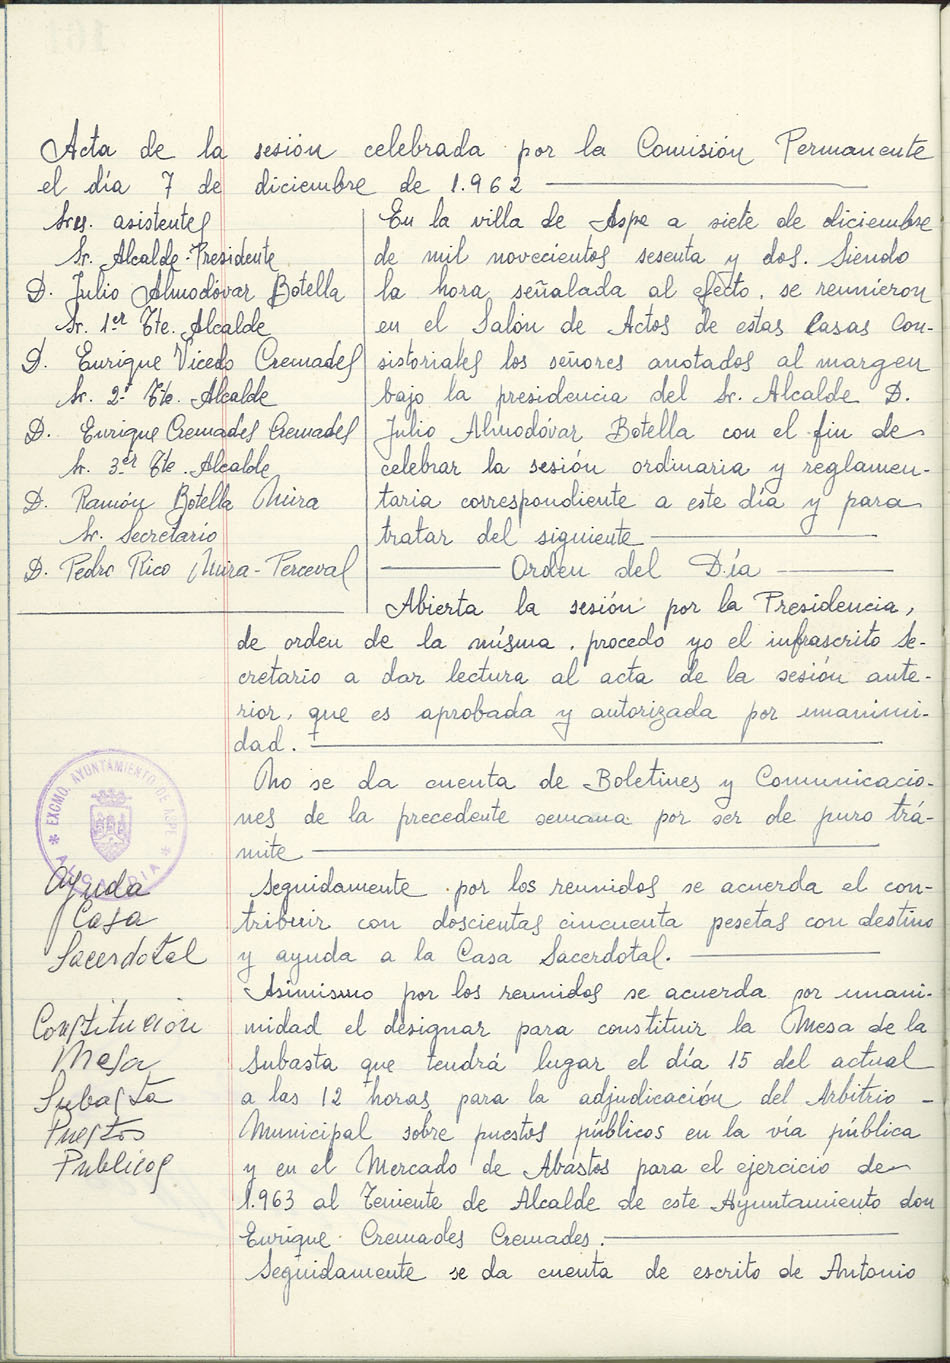 Acta de la sesión celebrada por la Comisión Permanente
el día 7 de diciembre de 1.962
Sres. asistentes
Sr. Alcalde-Presidente
D. Julio Almodóvar Botella
Sr. 1er Tte. Alcalde
D. Enrique Vicedo Cremades
Sr. 2º Tte. Alcalde
D. Enrique Cremades Cremades
Sr. 3er Tte. Alcalde
D. Ramón Botella Mira
Sr. Secretario
D. Pedro Rico Mira-Perceval
En la villa de Aspe a siete de diciembre
de mil novecientos sesenta y dos. Siendo
la hora señalada al efecto, se reunieron
en el Salón de Actos de estas Casas Con-
sistoriales los señores anotados al margen
bajo la presidencia del Sr. Alcalde D.
Julio Almodóvar Botella con el fin de
celebrar la sesión ordinaria y reglamen-
taria correspondiente a este día y para
tratar del siguiente
Orden del Día
Abierta la sesión por la Presidencia,
de orden de la mísma, procedo yo el infrascrito Se-
cretario a dar lectura al acta de la sesión ante-
rior, que es aprobada y autorizada por unanimi-
dad.
No se da cuenta de Boletines y Comunicacio-
nes de la precedente semana por ser de puro trá-
mite
EXCMO. AYUNTAMIENTO DE ASPE
ALCALDIA
Ayuda
Casa
Sacerdotal
Seguidamente por los reunidos se acuerda el con-
tribuir con doscientas cincuenta pesetas con destino
y ayuda a la Casa Sacerdotal.
Constitución
Mesa
Subasta
Puestos
Publicos
Asimismo por los reunidos se acuerda por unani-
midad el designar para constituir la Mesa de la
Subasta que tendrá lugar el día 15 del actual
a las 12 horas para la adjudicación del Arbitrio -
Municipal sobre puestos públicos en la vía pública
y en el Mercado de Abastos para el ejercicio de
1.963 al Teniente de Alcalde de este Ayuntamiento don
Enrique Cremades Cremades.
Seguidamente se da cuenta de escrito de Antonio